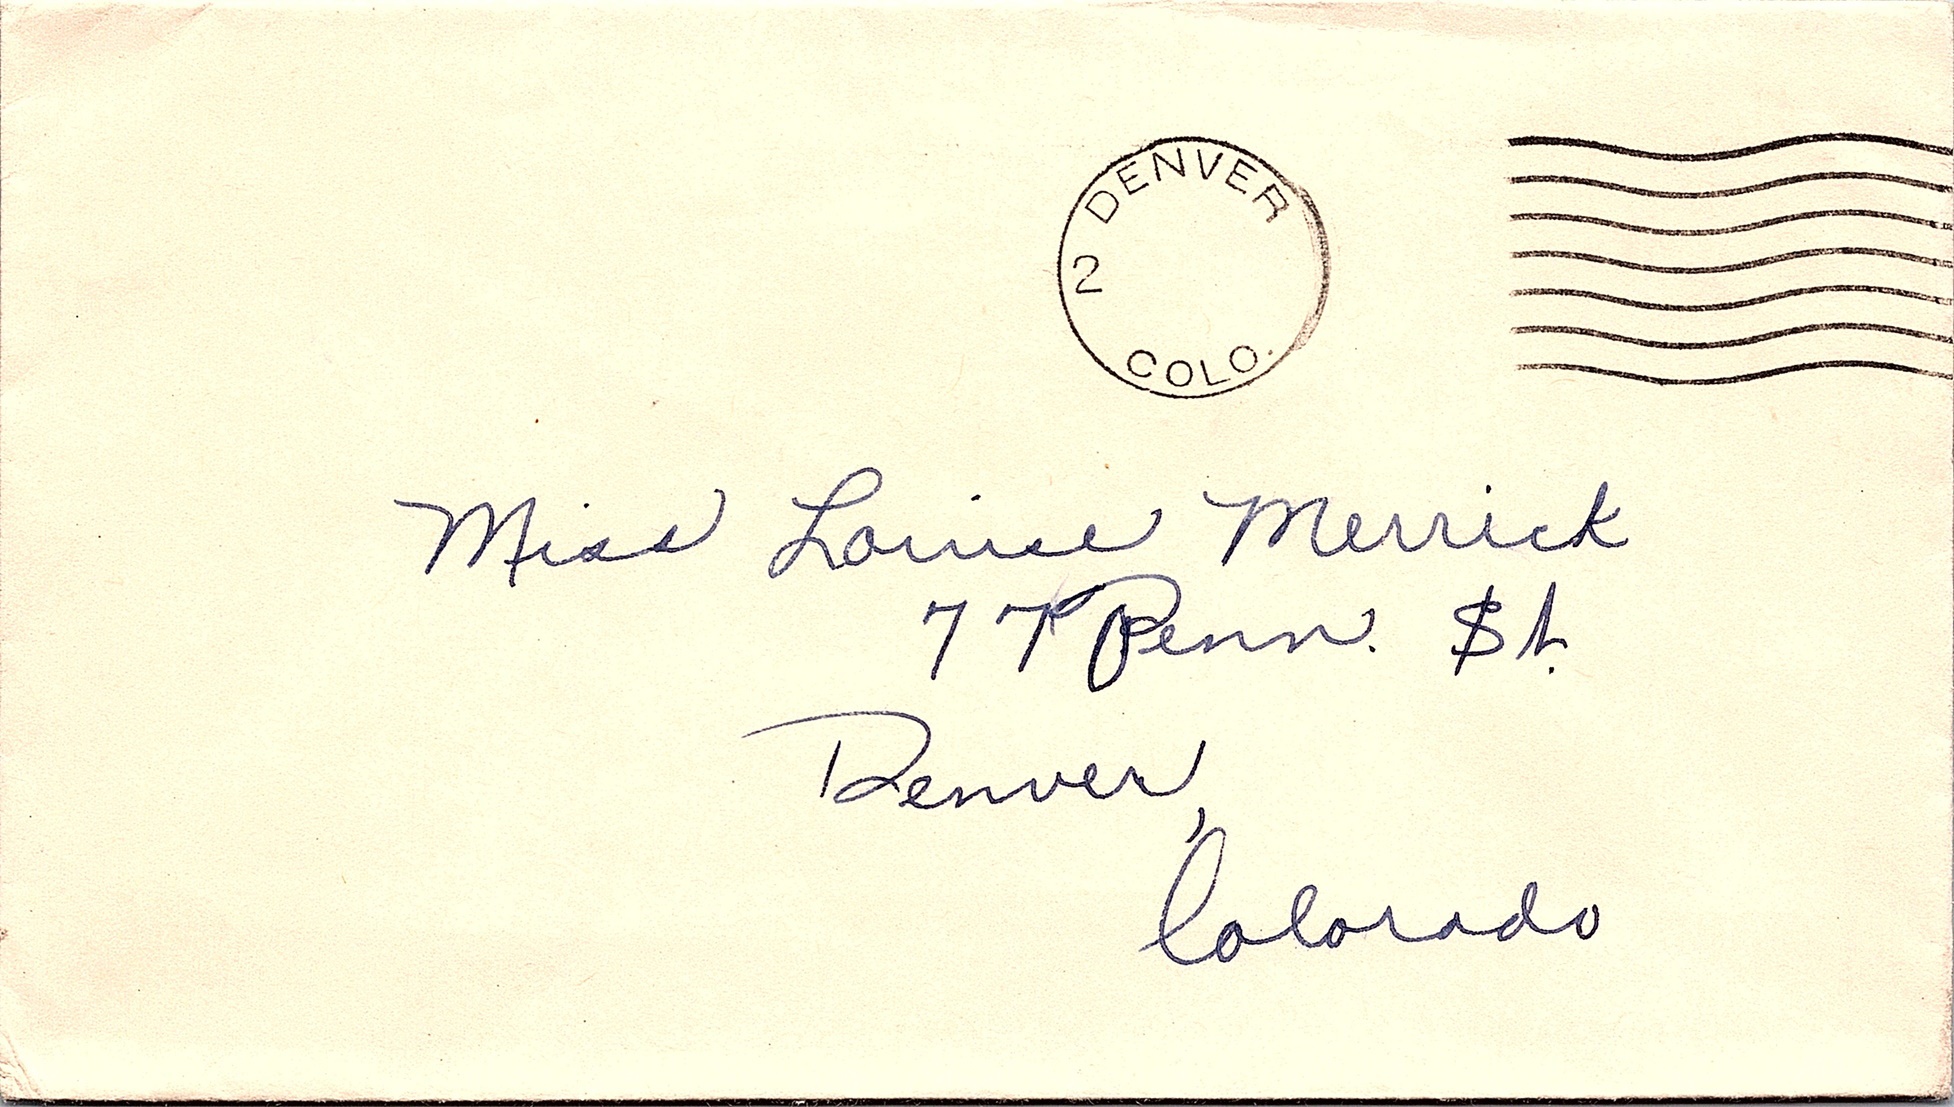 DENVER
2
COLO.
Miss Louise Merrick
77 Penn. St.
Denver,
Colorado